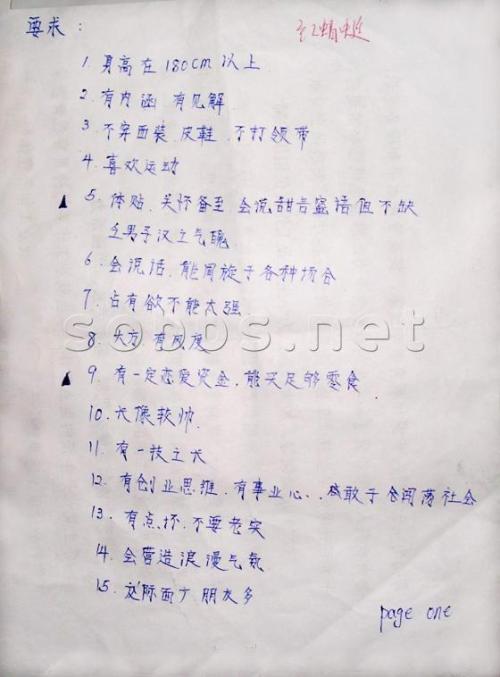 要求：
红蜻蜓
1. 身高在180cm以上
2. 有内涵 有见解
3. 不穿西装、皮鞋、不打领带
4. 喜欢运动
▲ 5. 体贴、关怀备至 会说甜言蜜语但不缺
乏男子汉之气魄
6. 会说话、能周旋于各种场合
7. 占有欲不能太强
sobos.net
8. 大方 有风度
▲ 9. 有一定恋爱资金，能买足够零食
10. 长像较帅
11. 有一技之长
12. 有创业思维，有事业心、敢于闯荡社会
13. 有点坏、不要老实
14. 会营造浪漫气氛
15. 交际面广 朋友多
page one